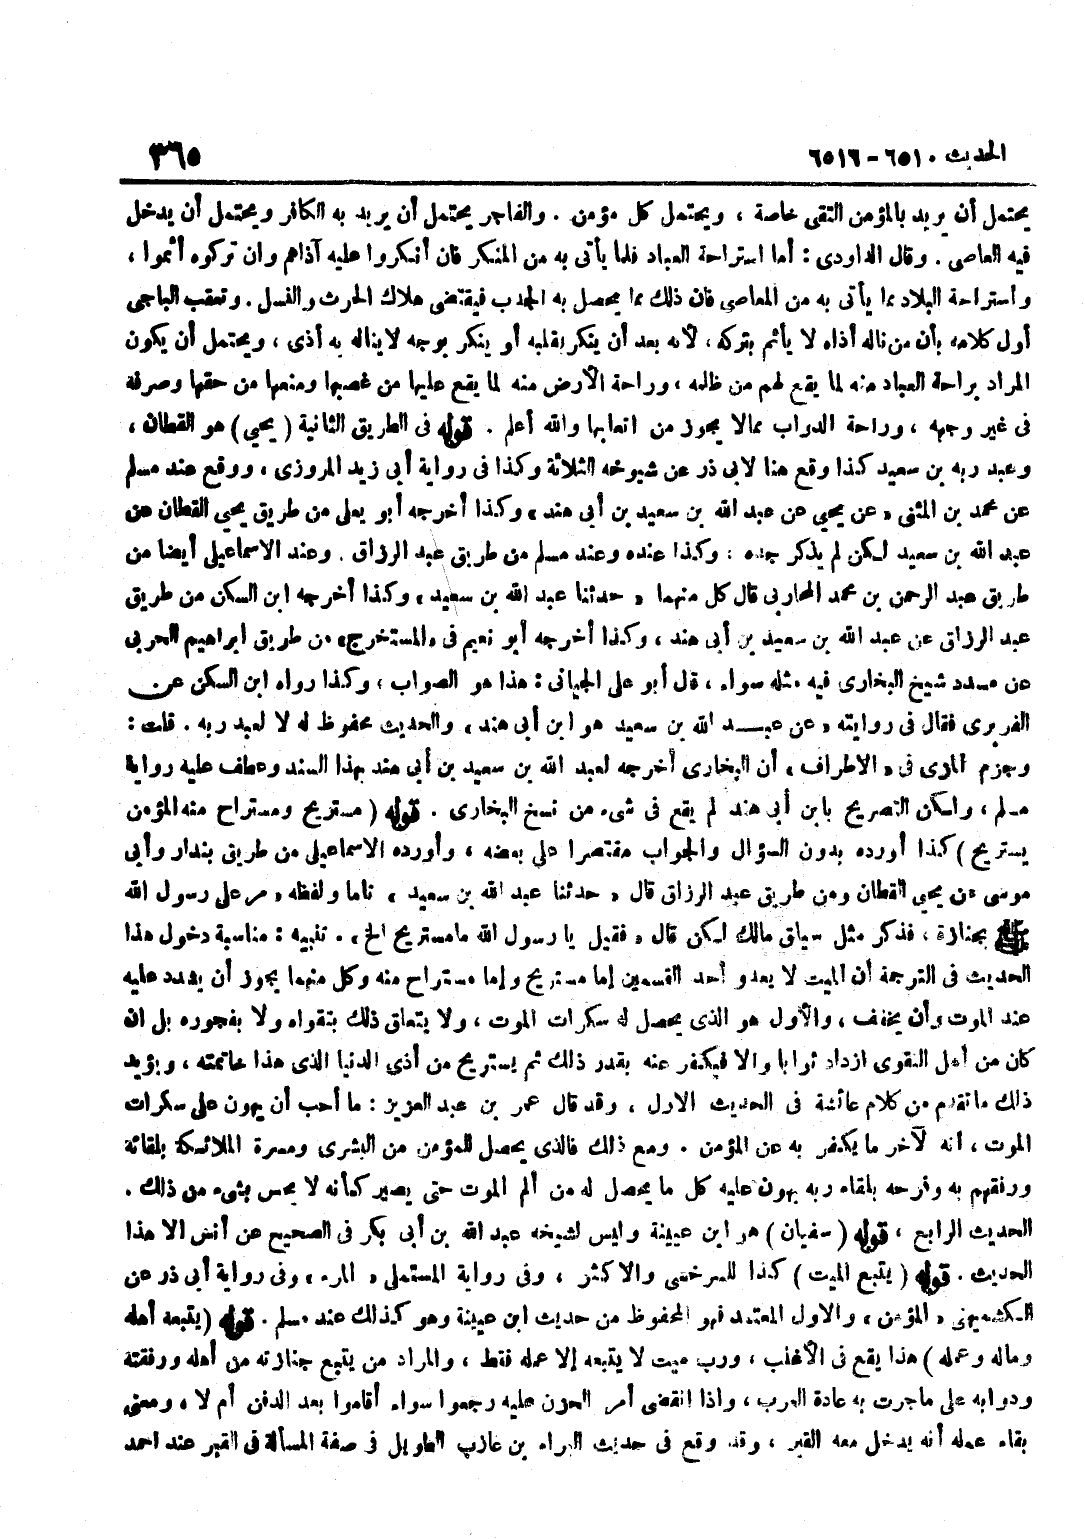 الحديث ٦٥١٠ - ٦٥١٦
٣٦٥
يحتمل أن يريد بالمؤمن التقى خاصة ، ويحتمل كل مؤمن . والفاجر يحتمل أن يريد به الكافر ويحتمل أن يدخل
فيه العاصى . وقال الداودى : أما استراحة العباد فلما يأتى به من المنكر فان أنكروا عليه آذاهم وان تركوه أثموا ،
واستراحة البلاد مما يأتى به من المعاصى فان ذلك مما يحصل به الجدب فيقتضى هلاك الحرث والنسل . وتعقب الباجى
أول كلامه بأن من ناله أذاه لا يأثم بتركه ، لأنه بعد أن ينكر بقلبه أو ينكر بوجه لا يناله به أذى ، ويحتمل أن يكون
المراد براحة العباد منه لما يقع لهم من ظلمه ، وراحة الأرض منه لما يقع عليها من غصبها ومنعها من حقها وصرفه
فى غير وجهه ، وراحة الدواب مما لا يجوز من اتعابها والله أعلم . قوله فى الطريق الثانية ( يحيى ) هو القطان ،
وعبد ربه بن سعيد كذا وقع هنا لابى ذر عن شيوخه الثلاثة وكذا فى رواية أبى زيد المروزى ، ووقع عند مسلم
عن محمد بن المثنى « عن يحيى عن عبد الله بن سعيد بن أبى هند » وكذا أخرجه أبو يعلى من طريق يحيى القطان عن
عبد الله بن سعيد لكن لم يذكر جده ، وكذا عنده وعند مسلم من طريق عبد الرزاق . وعند الاسماعيلى أيضا من
طريق عبد الرحمن بن محمد المحاربى قال كل منهما « حدثنا عبد الله بن سعيد » وكذا أخرجه ابن السكن من طريق
عبد الرزاق عن عبد الله بن سعيد بن أبى هند ، وكذا أخرجه أبو نعيم فى « المستخرج » من طريق ابراهيم الحربى
عن مسدد شيخ البخارى فيه مثله سواء ، قال أبو على الجيانى : هذا هو الصواب ، وكذا رواه ابن السكن عن
الفربرى فقال فى روايته « عن عبد الله بن سعيد هو ابن أبى هند » والحديث محفوظ له لا لعبد ربه . قلت :
وجزم المزى فى « الاطراف » أن البخارى أخرجه لعبد الله بن سعيد بن أبى هند بهذا السند وعطف عليه رواية
مسلم ، ولكن التصريح بابن أبى هند لم يقع فى شىء من نسخ البخارى . قوله ( مستريح ومستراح منه المؤمن
يستريح ) كذا أورده بدون السؤال والجواب مقتصرا على بعضه ، وأورده الاسماعيلى من طريق بندار وأبى
موسى عن يحيى القطان ومن طريق عبد الرزاق قال « حدثنا عبد الله بن سعيد » تاما ولفظه « مر على رسول الله
ﷺ بجنازة ، فذكر مثل سياق مالك لكن قال « فقيل يا رسول الله ما مستريح الخ » . تنبيه : مناسبة دخول هذا
الحديث فى الترجمة أن الميت لا يعدو أحد القسمين إما مستريح وإما مستراح منه وكل منهما يجوز أن يشدد عليه
عند الموت وأن يخفف ، والأول هو الذى يحصل له سكرات الموت ، ولا يتعلق ذلك بتقواه ولا بفجوره بل ان
كان من أهل التقوى ازداد ثوابا والا فيكفر عنه بقدر ذلك ثم يستريح من أذى الدنيا الذى هذا خاتمته ، ويؤيد
ذلك ما تقدم من كلام عائشة فى الحديث الاول ، وقد قال عمر بن عبد العزيز : ما أحب أن يهون على سكرات
الموت ، انه لآخر ما يكفر به عن المؤمن . ومع ذلك فالذى يحصل للمؤمن من البشرى ومسرة الملائكة بلقائه
ورفقهم به وفرحه بلقاء ربه يهون عليه كل ما يحصل له من ألم الموت حتى يصير كأنه لا يحس بشىء من ذلك .
الحديث الرابع ، قوله ( سفيان ) هو ابن عيينة وليس لشيخه عبد الله بن أبى بكر فى الصحيح عن أنس الا هذا
الحديث . قوله ( يتبع الميت ) كذا للسرخسى والاكثر ، وفى رواية المستملى « المرء » وفى رواية أبى ذر عن
الكشميهنى « المؤمن » والاول المعتمد فهو المحفوظ من حديث ابن عيينة وهو كذلك عند مسلم . قوله ( يتبعه أهله
وماله وعمله ) هذا يقع فى الأغلب ، ورب ميت لا يتبعه إلا عمله فقط ، والمراد من يتبع جنازته من أهله ورفقته
ودوابه على ما جرت به عادة العرب ، واذا انقضى أمر الحزن عليه رجعوا سواء أقاموا بعد الدفن أم لا ، ومعنى
بقاء عمله أنه يدخل معه القبر ، وقد وقع فى حديث البراء بن عازب الطويل فى صفة المسألة فى القبر عند احمد